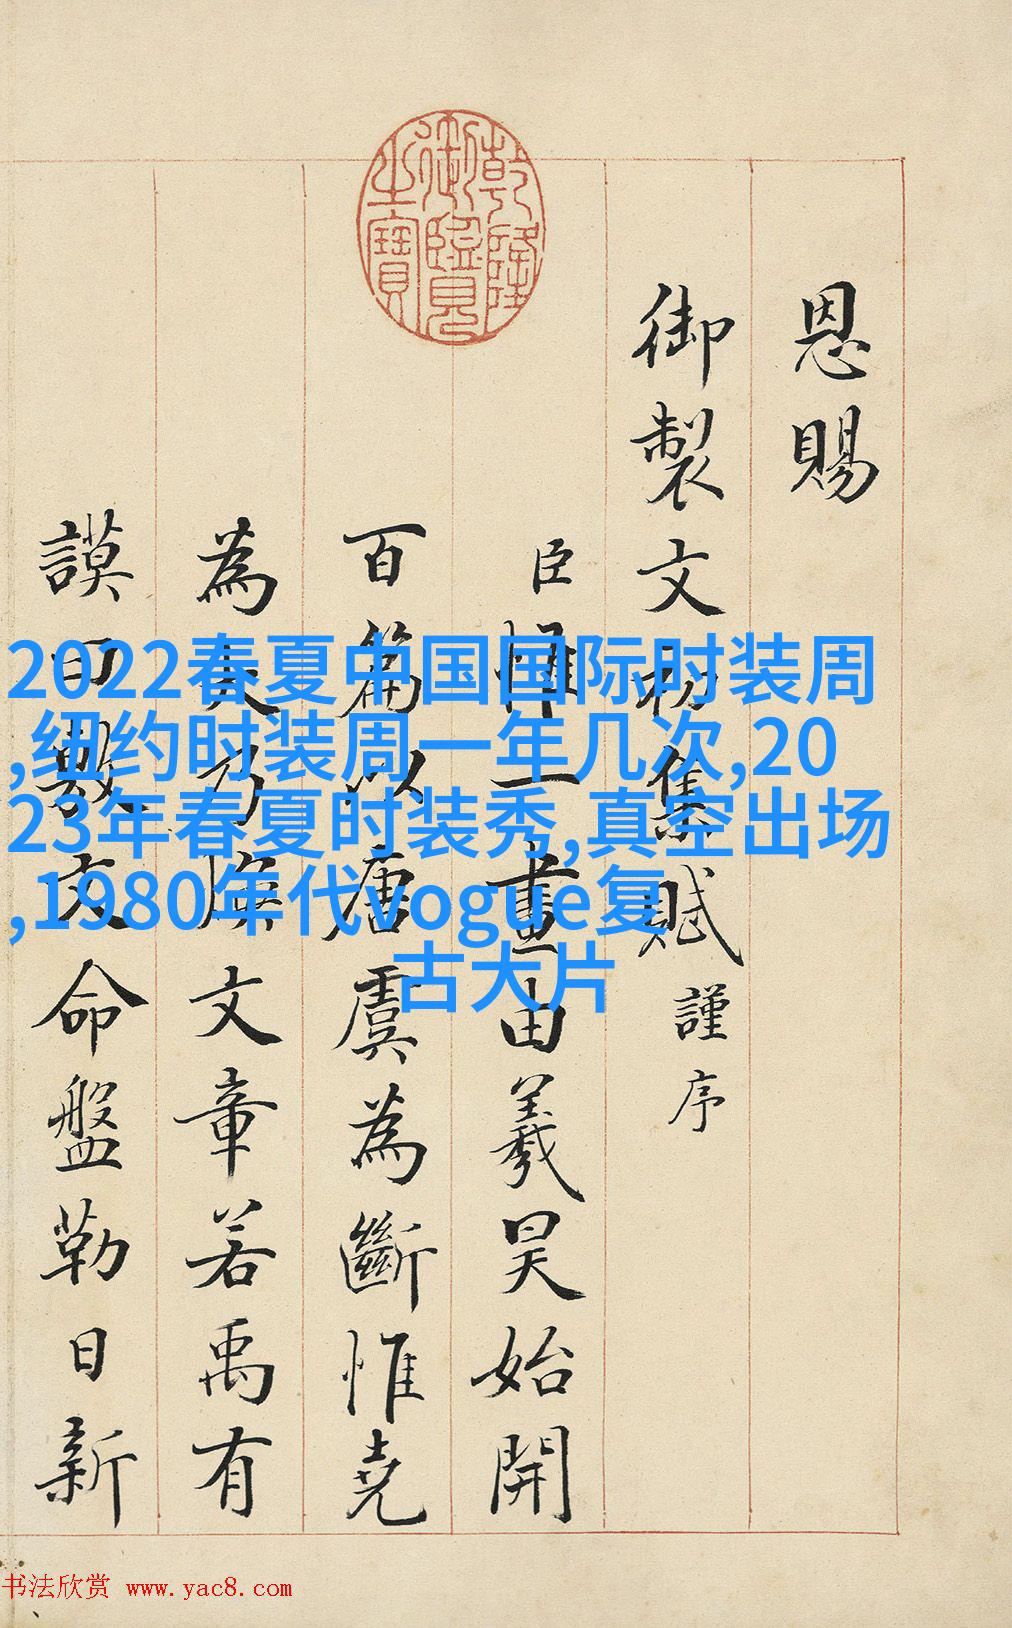 恩賜
御製文初集賦謹序
臣惟一畫由羲昊始開
百篇以唐虞為斷惟堯
為大乃煥文章若禹有
謨曰敷文命盤勒日新
乾隆御覽之寶
2022春夏中国国际时装周
,纽约时装周一年几次,20
23年春夏时装秀,真空出场
,1980年代vogue复
古大片
书法欣赏 www.yac8.com